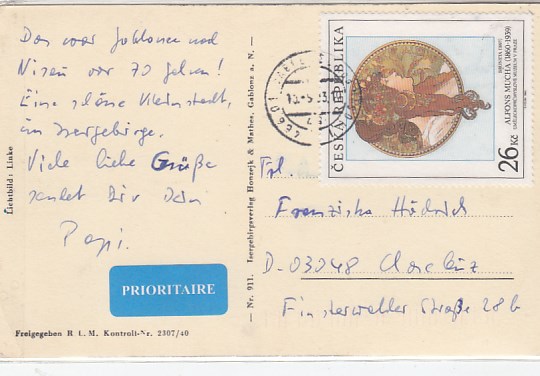 Das war Gablonz und
Nisau vor 70 Jahren!
Eine schöne Kleinstadt,
im Isergebirge.
Viele liebe Grüße
sendet Dir Dein
Papi.
PRIORITAIRE
Freigegeben R L M. Kontroll-Nr. 2307/40
Lichtbild: Linke
— Nr. 911. Isergebirgsverlag Honzejk & Mathea, Gablonz a. N.
466 01
ČESKÁ REPUBLIKA
ALFONS MUCHA (1860-1939)
26 Kč
Frl.
Franziska
D-03048
Finsterwalder Straße 28b